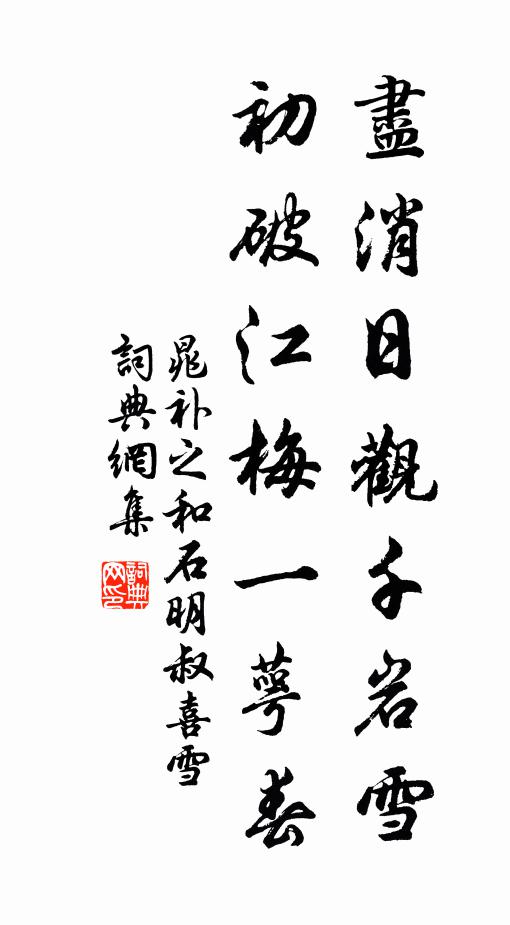 盡消日觀千岩雪
初破江梅一萼春
晁补之和石明叔喜雪
詞典網集
詞典网印